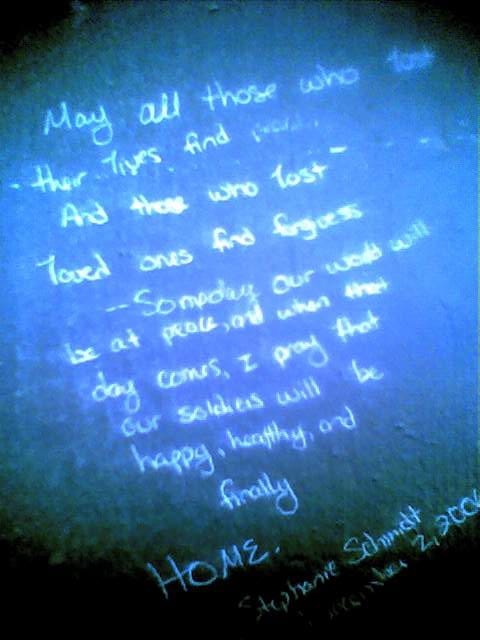 May all those who lost
their lives find
And those who lost
loved ones find forgivess
--Someday our world will
be at peace, and when that
day comes, I pray that
our soldiers will be
happy, healthy, and
finally
HOME.
Stephanie Schmidt
2, 2006